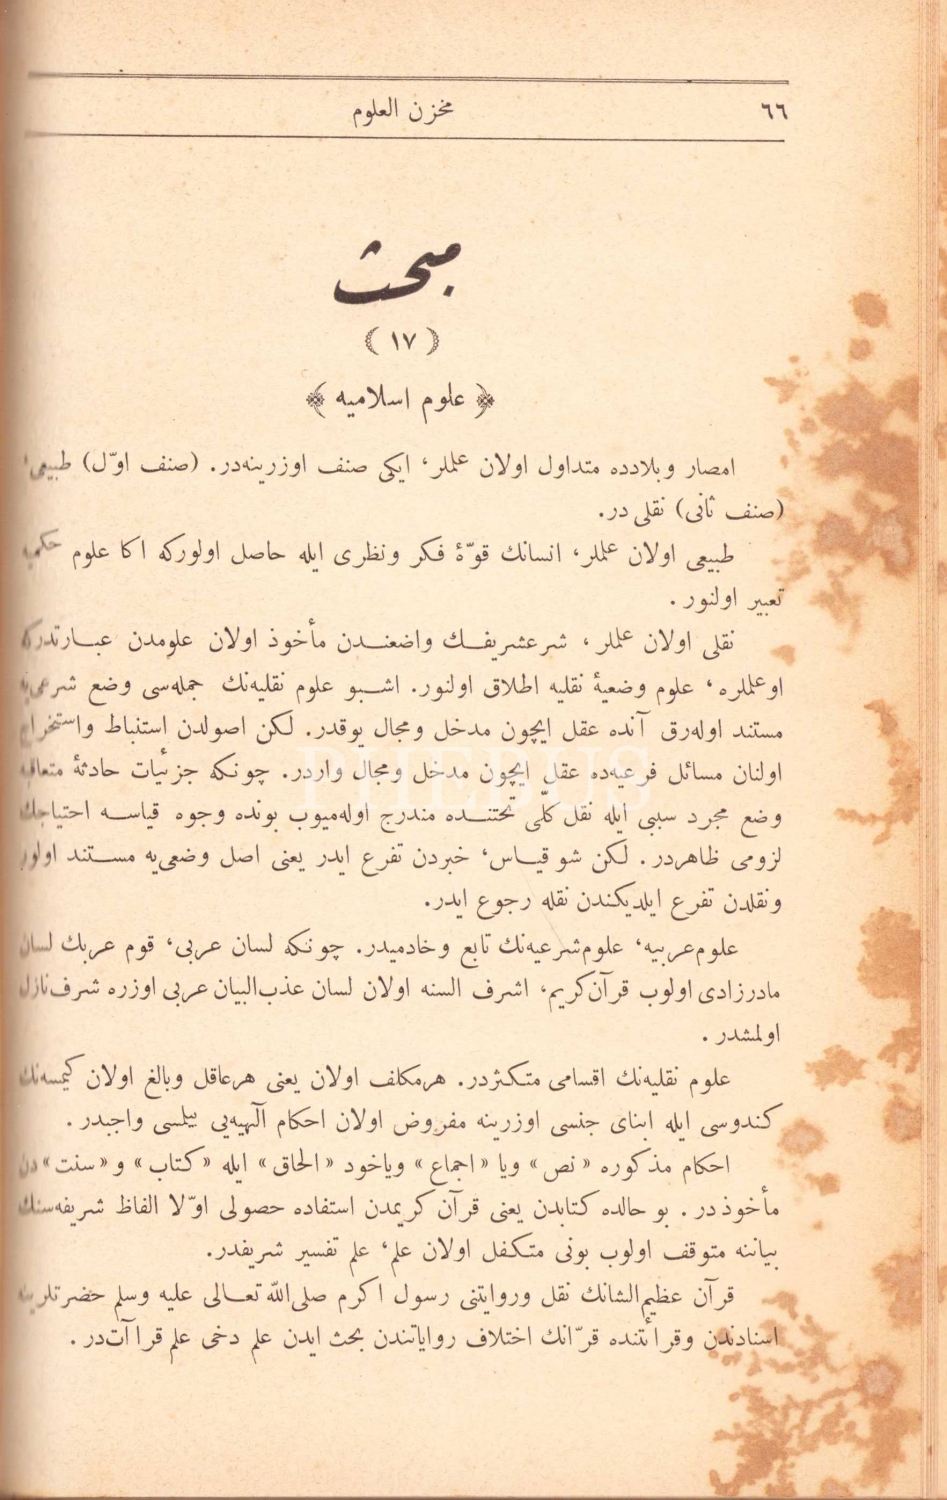 ٦٦
مخزن العلوم
مبحث
(١٧)
علوم اسلاميه
امصار وبلادده متداول اولان علملر، ايكى صنف اوزرينه‌در. (صنف اوّل) طبيعى،
(صنف ثانى) نقلى در.
طبيعى اولان علملر، انسانك قوّۀ فكر ونظرى ايله حاصل اولوركه اكا علوم حكميه
تعبير اولنور.
نقلى اولان علملر، شرعشريفك واضعندن مأخوذ اولان علومدن عبارتدركه
اوعلملره، علوم وضعيۀ نقليه اطلاق اولنور. اشبو علوم نقليه‌نك جمله‌سى وضع شرعى‌يه
مستند اوله‌رق آنده عقل ايچون مدخل ومجال يوقدر. لكن اصولدن استنباط واستخراج
اولنان مسائل فرعيه‌ده عقل ايچون مدخل ومجال واردر. چونكه جزئيات حادثۀ متعاقبه
وضع مجرد سببى ايله نقل كلّى تحتنده مندرج اوله‌ميوب بونده وجوه قياسه احتياجك
لزومى ظاهردر. لكن شو قياس، خبردن تفرع ايدر يعنى اصل وضعى‌يه مستند اولور
ونقلدن تفرع ايلديكندن نقله رجوع ايدر.
علوم عربيه، علوم شرعيه‌نك تابع وخادميدر. چونكه لسان عربى، قوم عربك لسان
مادرزادى اولوب قرآن كريم، اشرف السنه اولان لسان عذب‌البيان عربى اوزره شرف‌نازل
اولمشدر.
علوم نقليه‌نك اقسامى متكثردر. هرمكلف اولان يعنى هرعاقل وبالغ اولان كيمسه‌نك
كندوسى ايله ابناى جنسى اوزرينه مفروض اولان احكام آلهيه‌يى بيلمسى واجبدر.
احكام مذكوره «نص» ويا «اجماع» وياخود «الحاق» ايله «كتاب» و«سنت» دن
مأخوذدر. بو حالده كتابدن يعنى قرآن كريمدن استفاده حصولى اوّلا الفاظ شريفه‌سنك
بياننه متوقف اولوب بونى متكفل اولان علم، علم تفسير شريفدر.
قرآن عظيم‌الشانك نقل وروايتنى رسول اكرم صلى‌الله تعالى عليه وسلم حضرتلرينه
اسنادندن وقرائتنده قرّانك اختلاف رواياتندن بحث ايدن علم دخى علم قراآت‌در.
PHEBUS